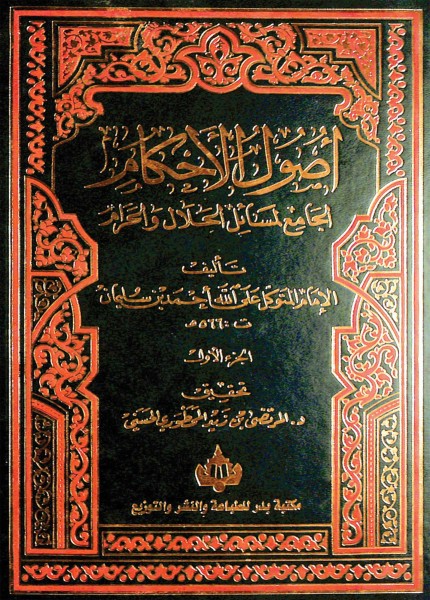 أصول الأحكام
الجامع لمسائل الحلال والحرام
تأليف
الإمام المتوكل على الله أحمد بن سليمان
ت: ٥٦٦ هـ
الجزء الأول
تحقيق
د. المرتضى بن زيد المحطوري الحسني
مكتبة بدر للطباعة والنشر والتوزيع